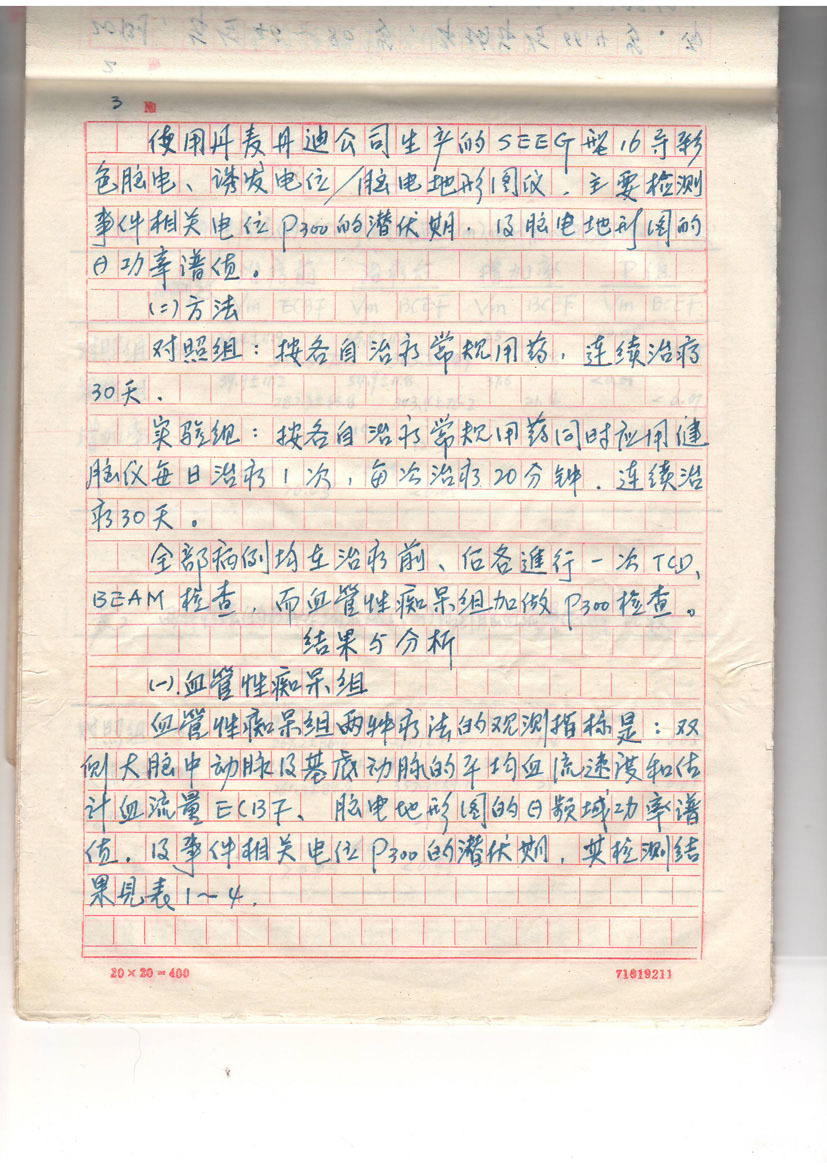 3 №
使用丹麦丹迪公司生产的SEEG型16导彩
色脑电、诱发电位/脑电地形图仪．主要检测
事件相关电位P300的潜伏期．及脑电地形图的
θ功率谱值。
(二)方法
对照组：按各自治疗常规用药，连续治疗
30天．
实验组：按各自治疗常规用药同时应用健
脑仪每日治疗1次，每次治疗20分钟．连续治
疗30天。
全部病例均在治疗前、后各進行一次TCD、
BEAM检查，而血管性痴呆组加做P300检查。
结果与分析
(一).血管性痴呆组
血管性痴呆组两种疗法的观测指标是：双
侧大脑中动脉及基底动脉的平均血流速度和估
计血流量ECBF、脑电地形图的θ频域功率谱
值．及事件相关电位P300的潜伏期，其检测结
果見表1～4．
20×20=400 71819211